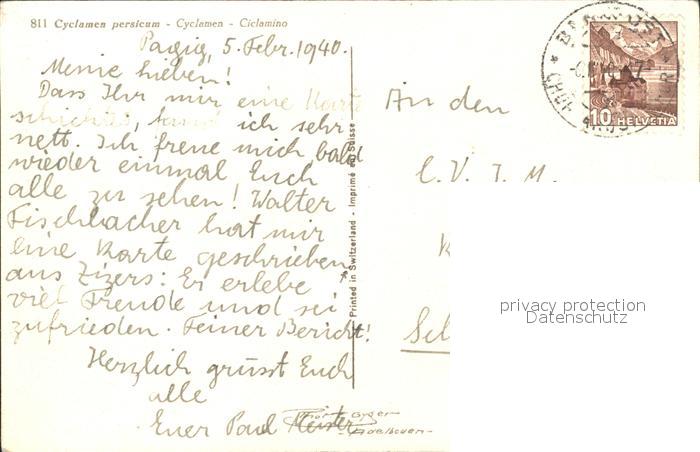 811 Cyclamen persicum - Cyclamen - Ciclamino
5. Febr. 1940.
Meine Lieben!
Dass Ihr mir eine Karte
schicktet, fand ich sehr
nett. Ich freue mich bald
wieder einmal Euch
alle zu sehen! Walter
Fischbacher hat mir
eine Karte geschrieben
aus Zizers: Er erlebe
viel Freude und sei
zufrieden. Feiner Bericht!
Herzlich grüsst Euch
alle
Euer Paul
Printed in Switzerland - Imprimé en Suisse
Phot. Gyger
Adelboden
10 HELVETIA
An den
C. V. J. M.
privacy protection
Datenschutz